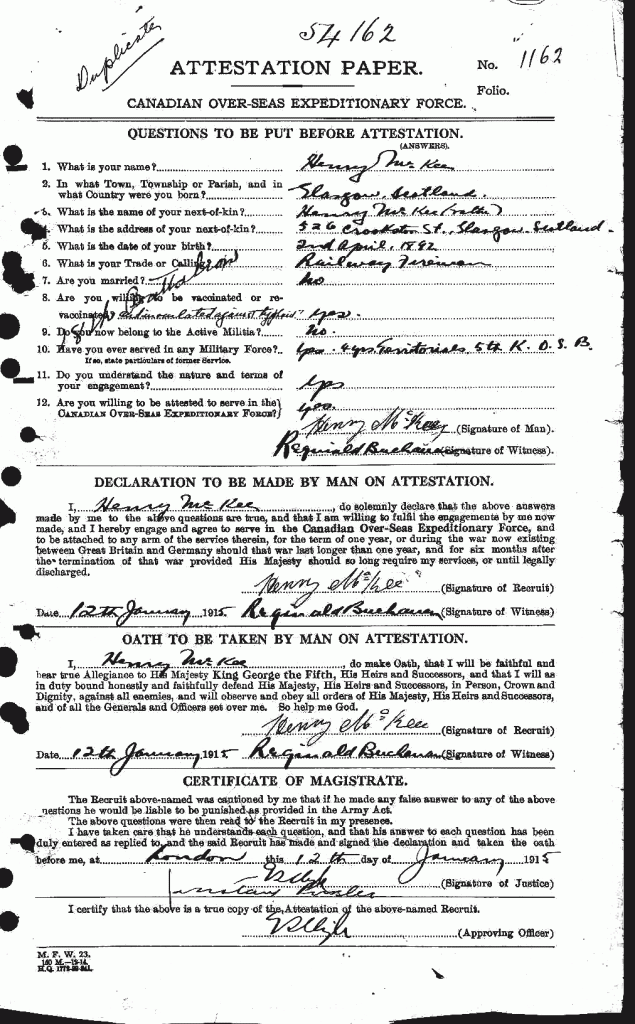 54162
Duplicate
ATTESTATION PAPER.
No. 1162
Folio.
CANADIAN OVER-SEAS EXPEDITIONARY FORCE.
QUESTIONS TO BE PUT BEFORE ATTESTATION.
(ANSWERS).
1. What is your name? Henry McKee
2. In what Town, Township or Parish, and in
what Country were you born? Glasgow, Scotland
3. What is the name of your next-of-kin? Henry McKee (father)
4. What is the address of your next-of-kin? 526 Crookston St., Glasgow, Scotland.
5. What is the date of your birth? 2nd April, 1892
6. What is your Trade or Calling? Railway Fireman
7. Are you married? No
18th Battalion
8. Are you willing to be vaccinated or re-
vaccinated? and inoculated against typhoid yes.
9. Do you now belong to the Active Militia? No.
10. Have you ever served in any Military Force? Yes. 4 yrs Territorials 5th K. O. S. B.
If so, state particulars of former Service.
11. Do you understand the nature and terms of
your engagement? Yes
12. Are you willing to be attested to serve in the
CANADIAN OVER-SEAS EXPEDITIONARY FORCE? Yes.
Henry McKee (Signature of Man).
Reginald Buchanan (Signature of Witness).
DECLARATION TO BE MADE BY MAN ON ATTESTATION.
I, Henry McKee, do solemnly declare that the above answers
made by me to the above questions are true, and that I am willing to fulfil the engagements by me now
made, and I hereby engage and agree to serve in the Canadian Over-Seas Expeditionary Force, and
to be attached to any arm of the service therein, for the term of one year, or during the war now existing
between Great Britain and Germany should that war last longer than one year, and for six months after
the termination of that war provided His Majesty should so long require my services, or until legally
discharged.
Henry McKee (Signature of Recruit)
Date 12th January 1915 Reginald Buchanan (Signature of Witness)
OATH TO BE TAKEN BY MAN ON ATTESTATION.
I, Henry McKee, do make Oath, that I will be faithful and
bear true Allegiance to His Majesty King George the Fifth, His Heirs and Successors, and that I will as
in duty bound honestly and faithfully defend His Majesty, His Heirs and Successors, in Person, Crown and
Dignity, against all enemies, and will observe and obey all orders of His Majesty, His Heirs and Successors,
and of all the Generals and Officers set over me. So help me God.
Henry McKee (Signature of Recruit)
Date 12th January, 1915 Reginald Buchanan (Signature of Witness)
CERTIFICATE OF MAGISTRATE.
The Recruit above-named was cautioned by me that if he made any false answer to any of the above
questions he would be liable to be punished as provided in the Army Act.
The above questions were then read to the Recruit in my presence.
I have taken care that he understands each question, and that his answer to each question has been
duly entered as replied to, and the said Recruit has made and signed the declaration and taken the oath
before me, at London this 12th day of January 1915
(Signature of Justice)
I certify that the above is a true copy of the Attestation of the above-named Recruit.
(Approving Officer)
M. F. W. 23.